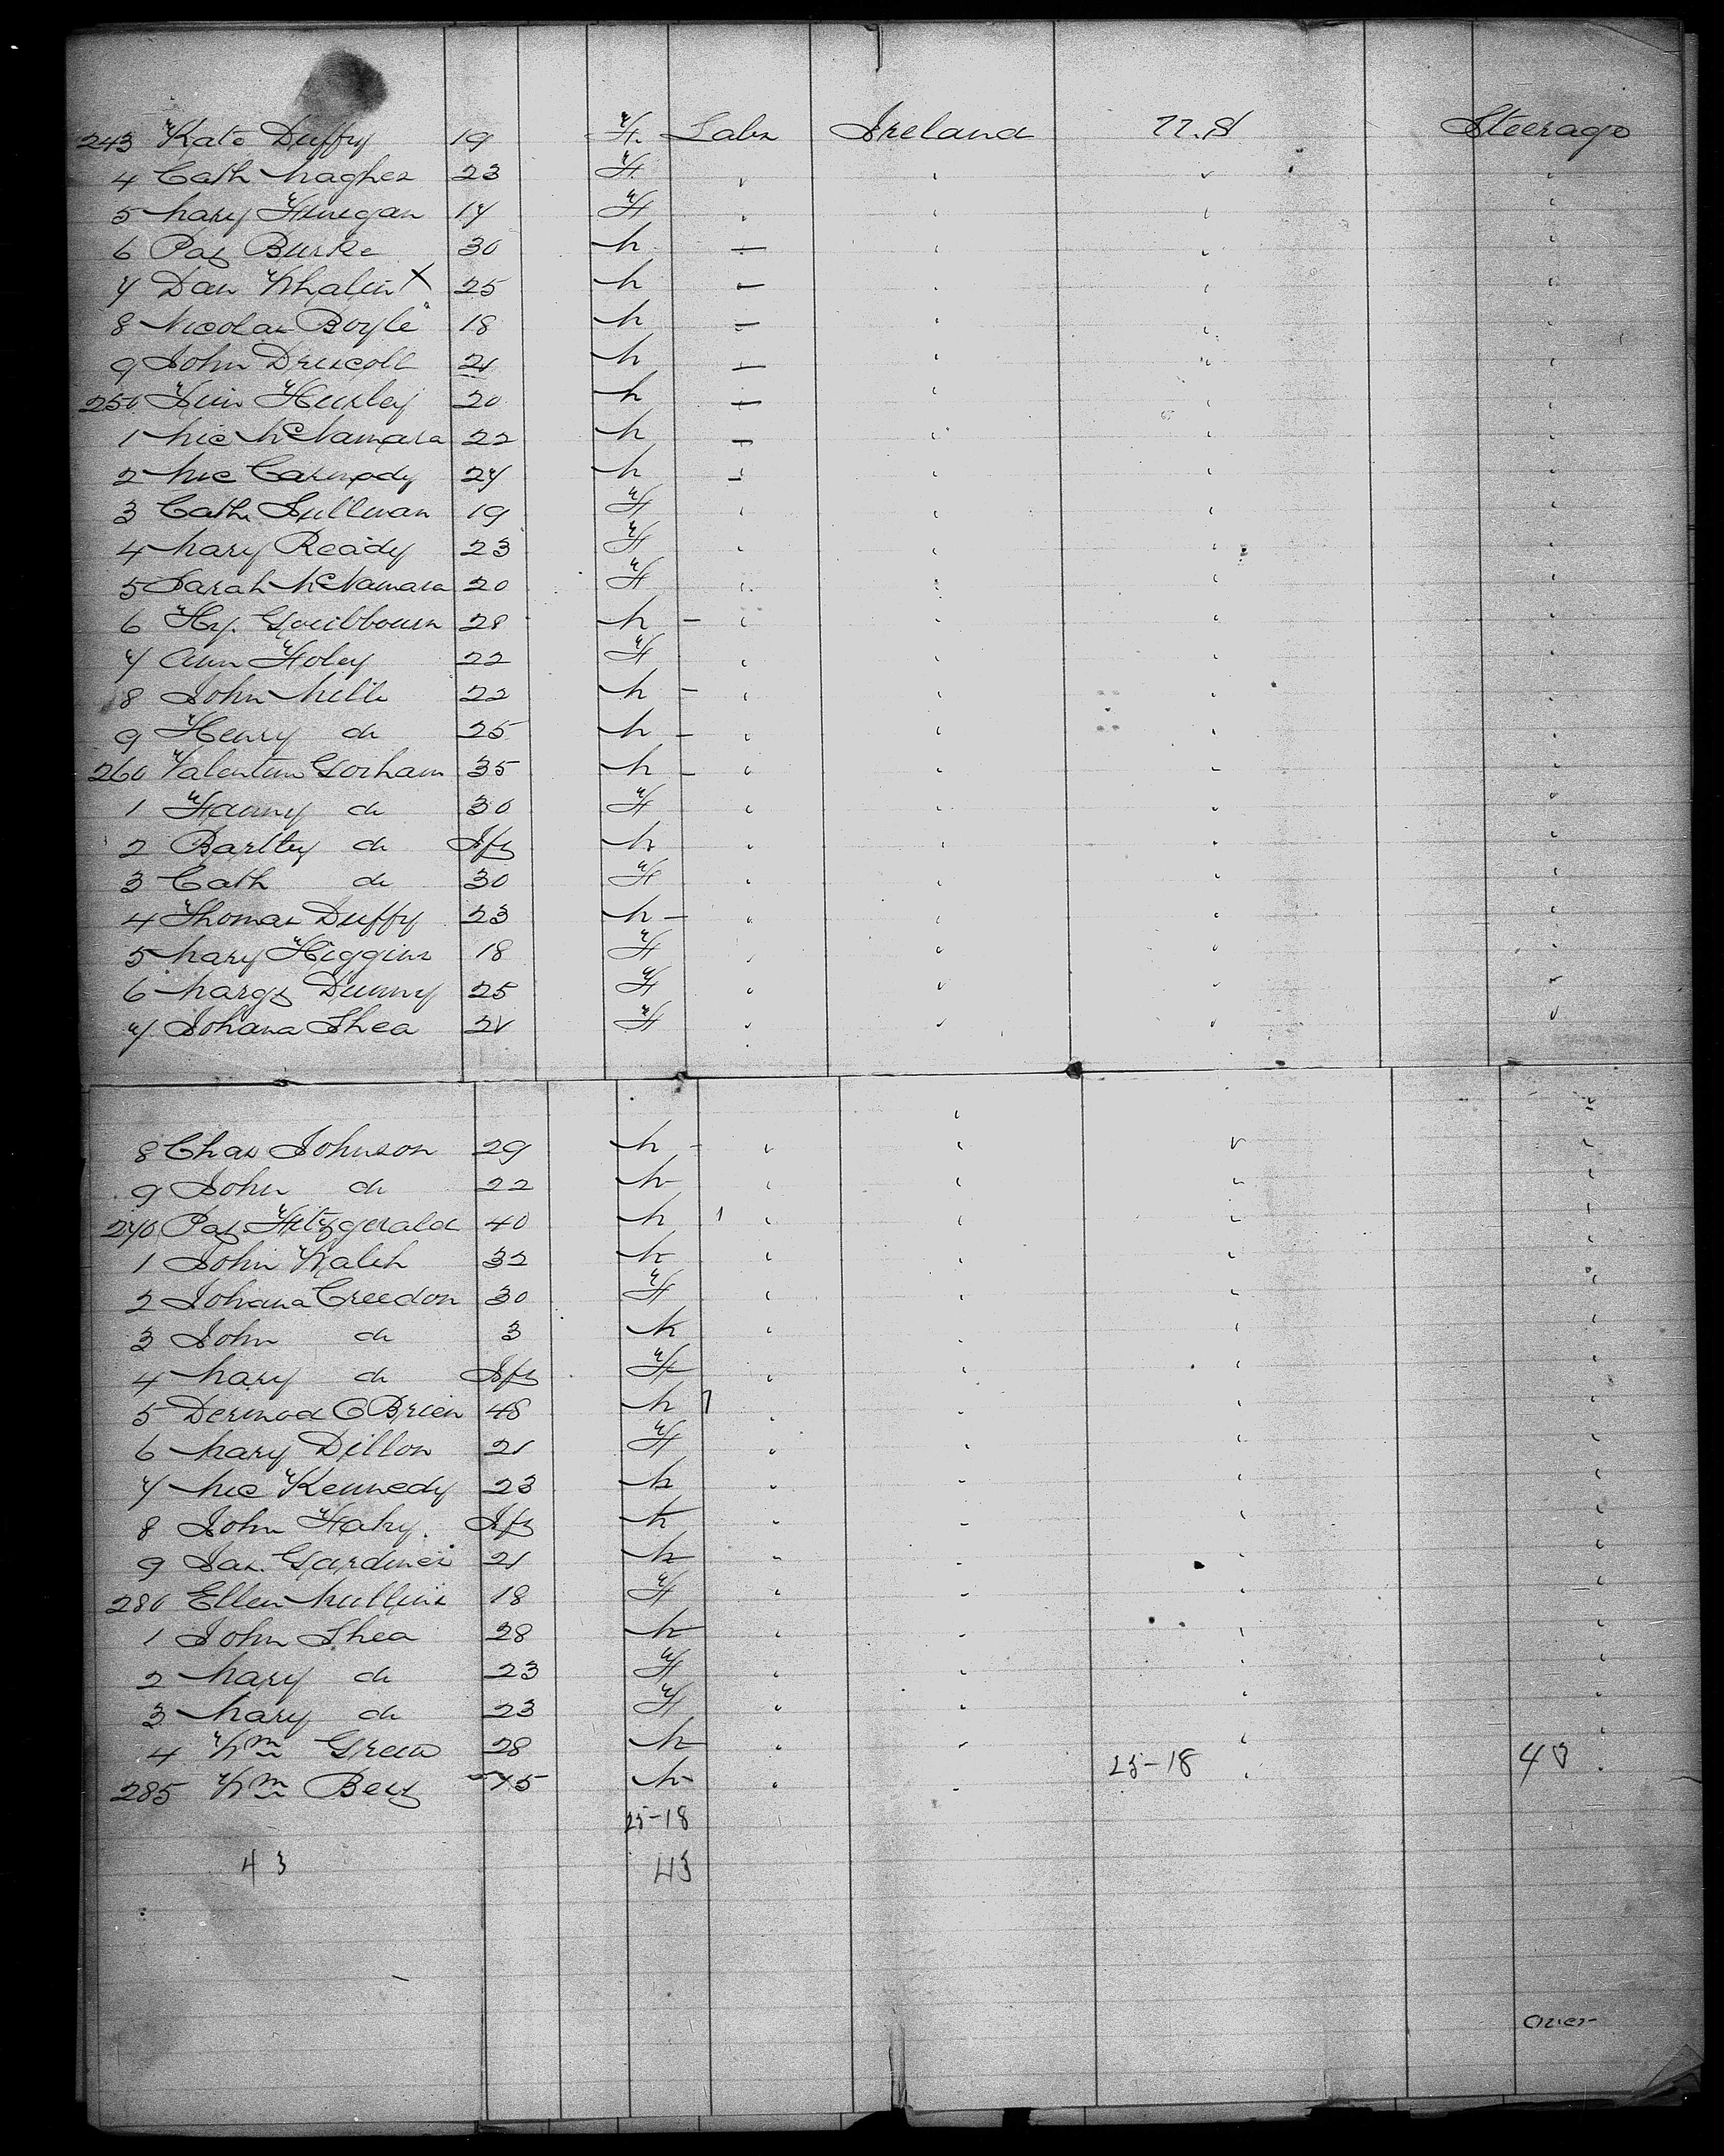 243 Kate Duffy 19 F. Labr Ireland U.S Steerage
4 Cath Magher 23 F " " " "
5 Mary Finegan 17 F " " " "
6 Pat Burke 30 M — " " "
7 Dan Whalen X 25 M — " " "
8 Nicolas Boyle 18 M — " " "
9 John Driscoll 21 M — " " "
250 Hurley 20 M — " " "
1 Mic McNamara 22 M — " " "
2 Mic Carmody 24 M — " " "
3 Cath Sullivan 19 F " " " "
4 Mary Ready 23 F " " " "
5 Sarah McNamara 20 F " " " "
6 Hy. 28 M – " " " "
7 Ann Foley 22 F " " " "
8 John Mills 22 M – " " " "
9 Henry do 25 M – " " " "
260 Valentine Gorham 35 M – " " " "
1 Fanny do 30 F " " " "
2 Bartley do Inft M " " " "
3 Cath do 30 F " " " "
4 Thomas Duffy 23 M – " " " "
5 Mary Higgins 18 F " " " "
6 Margt Dunny 25 F " " " "
7 Johana Shea 21 F " " " "
8 Chas Johnson 29 M – " " " "
9 John do 22 M " " " "
270 Pat Fitzgerald 40 M " " " "
1 John Walsh 32 M " " " "
2 Johana Creedon 30 F " " " "
3 John do 3 M " " " "
4 Mary do Inft F " " " "
5 Dermod OBrien 48 M " " " "
6 Mary Dillon 21 F " " " "
7 Mic Kennedy 23 M " " " "
8 John Fahy. Inft M " " " "
9 Jas. Gardiner 21 M " " " "
280 Ellen Mullins 18 F " " " "
1 John Shea 28 M " " " "
2 Mary do 23 F " " " "
3 Mary do 23 F " " " "
4 Wm Green 28 M " " " "
285 Wm M " " 25-18 " 43 "
25-18
43 43